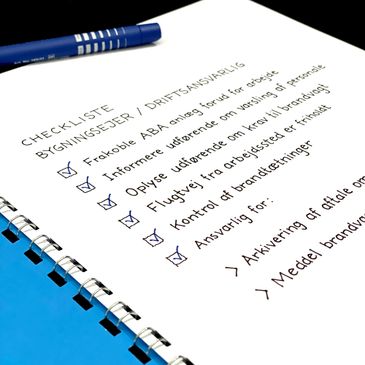 CHECKLISTE
BYGNINGSEJER / DRIFTSANSVARLIG
Frakoble ABA anlæg forud for arbejde
Informere udførende om varsling af personale
Oplyse udførende om krav til brandvagt
Flugtvej fra arbejdssted er friholdt
Kontrol af brandtætninger
Ansvarlig for:
> Arkivering af aftale om
> Meddel brandva